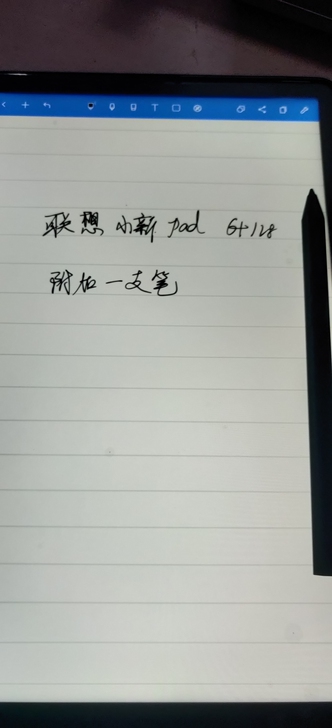 联想小新 pad 6+128
附加一支笔